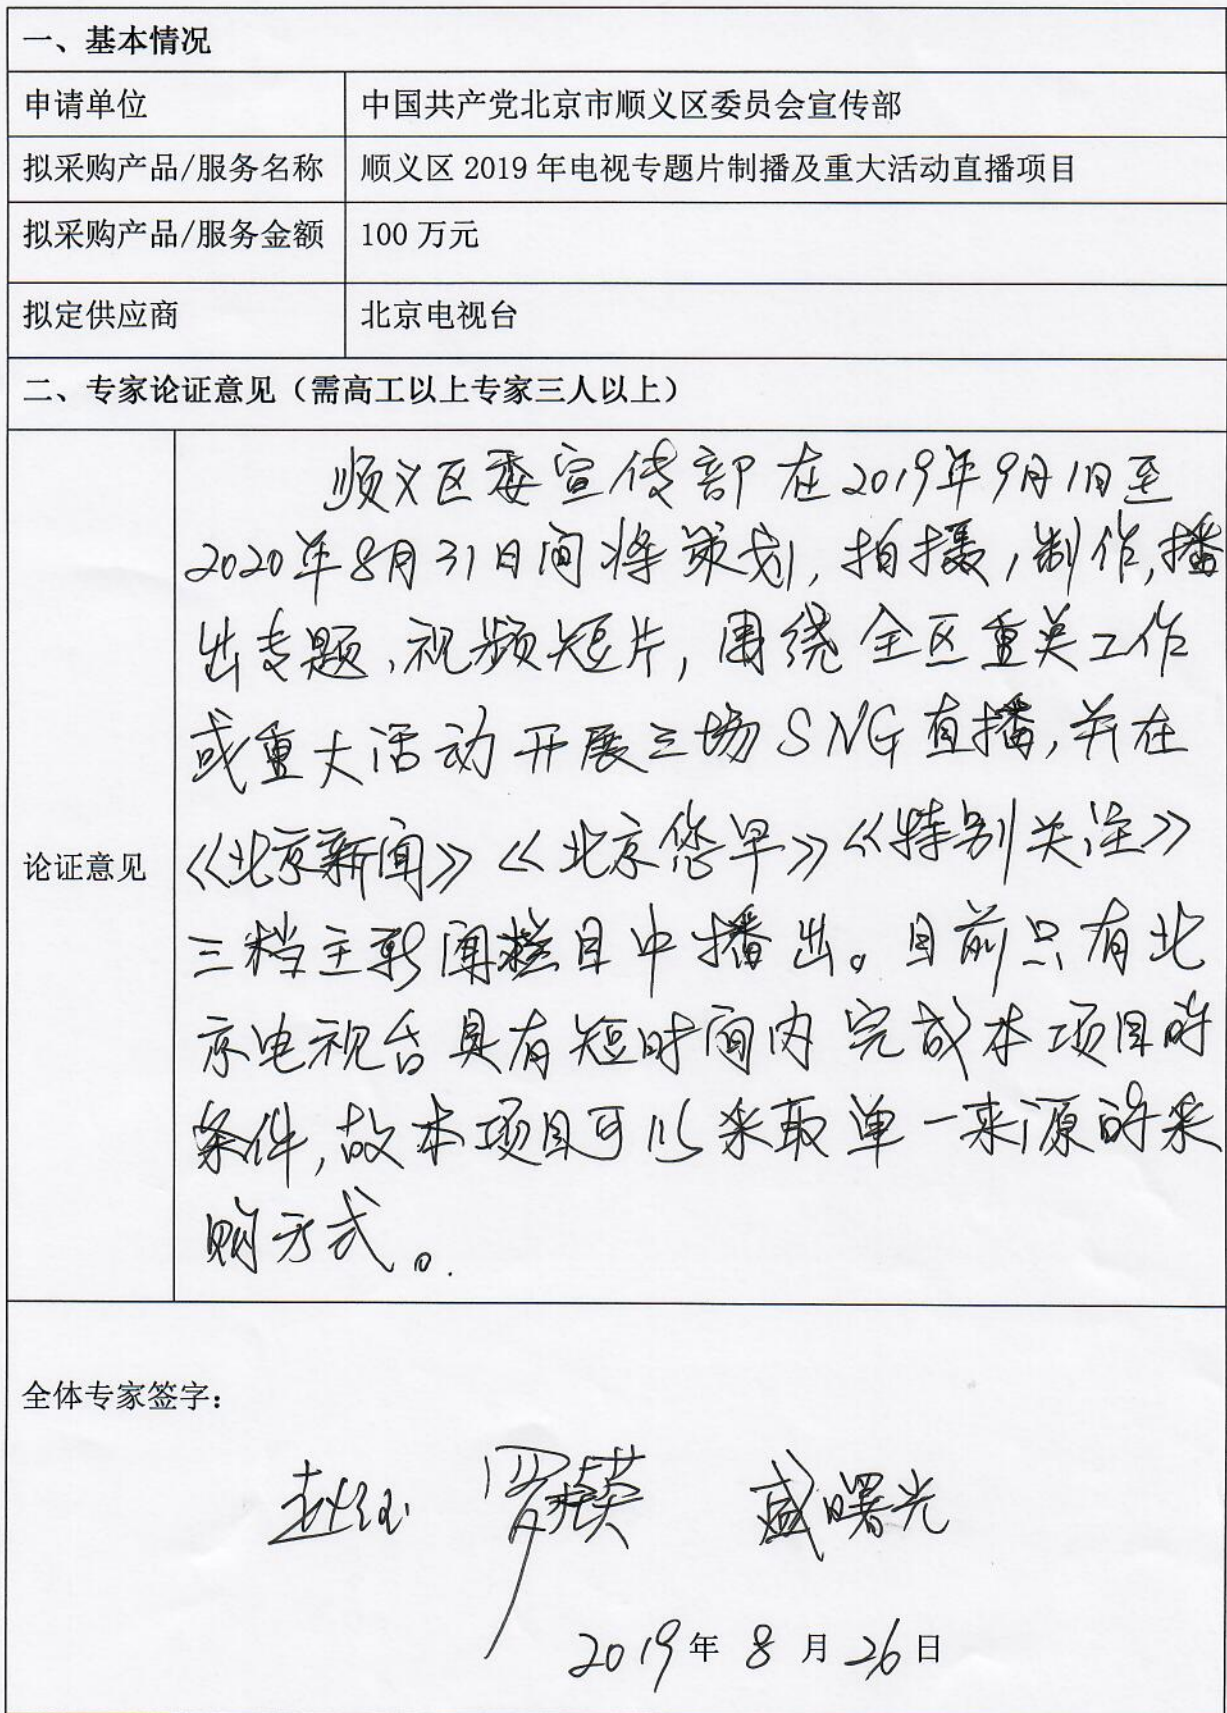 一、基本情况
申请单位 中国共产党北京市顺义区委员会宣传部
拟采购产品/服务名称 顺义区 2019 年电视专题片制播及重大活动直播项目
拟采购产品/服务金额 100 万元
拟定供应商 北京电视台
二、专家论证意见（需高工以上专家三人以上）
论证意见
顺义区委宣传部在2019年9月1日至
2020年8月31日间将策划,拍摄,制作,播
出专题、视频短片,围绕全区重点工作
或重大活动开展三场SNG直播,并在
《北京新闻》《北京您早》《特别关注》
三档主新闻栏目中播出。目前只有北
京电视台具有短时间内完成本项目的
条件,故本项目可以采取单一来源的采
购方式。
全体专家签字：
盛曙光
2019年 8 月 26日